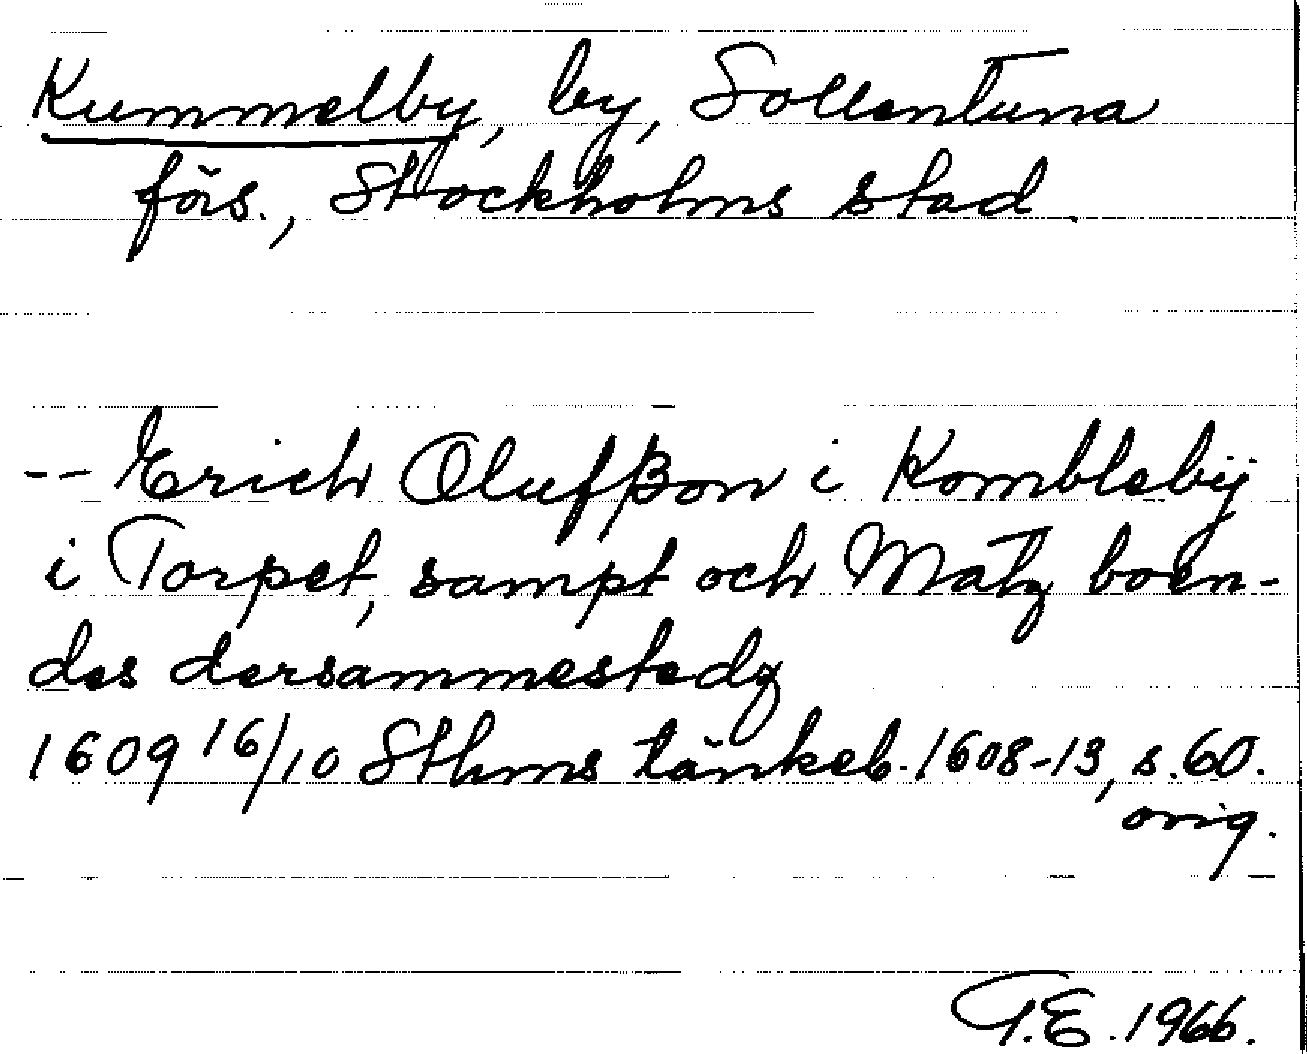 Kummelby, by, Sollentuna
förs., Stockholms stad.
-- Erich Olufßon i Komblebÿ
i Torpet, sampt och Matz boen-
des dersammestedz
1609 16/10 Sthms tänkeb. 1608-13, s. 60.
orig.
T.E. 1966.